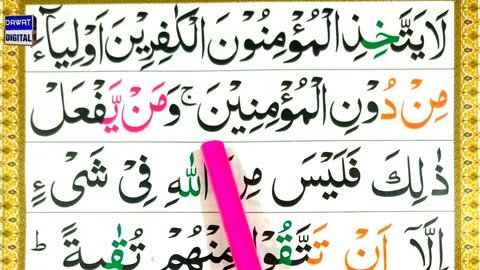 DAWAT
DIGITAL
لَا يَتَّخِذِ الْمُؤْمِنُوْنَ الْكٰفِرِيْنَ اَوْلِيَآءَ
مِنْ دُوْنِ الْمُؤْمِنِيْنَ ۚ وَمَنْ يَّفْعَلْ
ذٰلِكَ فَلَيْسَ مِنَ اللّٰهِ فِيْ شَيْءٍ
اِلَّاۤ اَنْ تَتَّقُوْا مِنْهُمْ تُقٰىةً ؕ